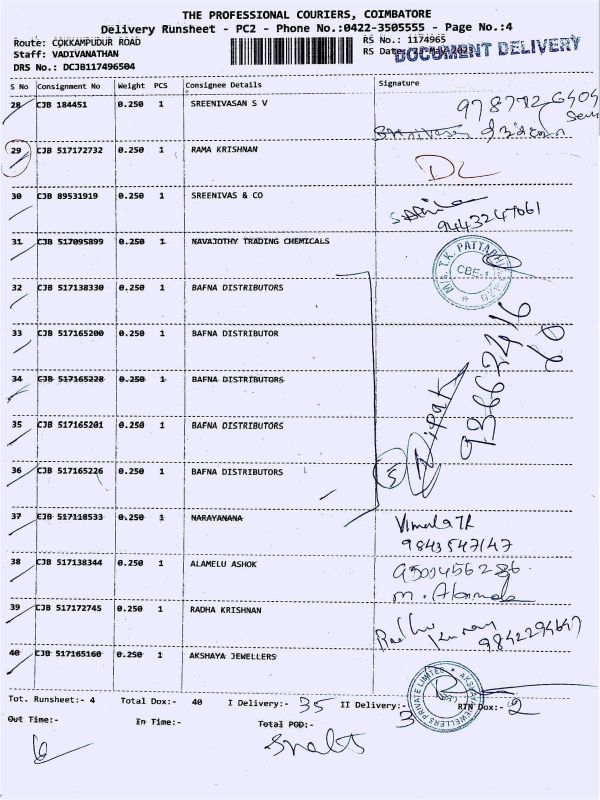 THE PROFESSIONAL COURIERS, COIMBATORE
Delivery Runsheet - PC2 - Phone No.:0422-3505555 - Page No.:4
Route: COKKAMPUDUR ROAD
Staff: VADIVANATHAN
DRS No.: DCJB117496504
RS No.: 1174965
RS Date: 23-May-2023
DOCUMENT DELIVERY
S No Consignment No Weight PCS Consignee Details Signature
28 CJB 184451 0.250 1 SREENIVASAN S V
29 CJB 517172732 0.250 1 RAMA KRISHNAN DL
30 CJB 89531919 0.250 1 SREENIVAS & CO 9443247061
31 CJB 517095899 0.250 1 NAVAJOTHY TRADING CHEMICALS
M/s. T.K. PATTAB
CBE-1
32 CJB 517138330 0.250 1 BAFNA DISTRIBUTORS
33 CJB 517165200 0.250 1 BAFNA DISTRIBUTOR
34 CJB 517165228 0.250 1 BAFNA DISTRIBUTORS
35 CJB 517165201 0.250 1 BAFNA DISTRIBUTORS
36 CJB 517165226 0.250 1 BAFNA DISTRIBUTORS
5 Dipak
37 CJB 517118533 0.250 1 NARAYANANA Vimala TR
9843547147
38 CJB 517138344 0.250 1 ALAMELU ASHOK
39 CJB 517172745 0.250 1 RADHA KRISHNAN Radha
9842294647
40 CJB 517165160 0.250 1 AKSHAYA JEWELLERS
AKSHAYA JEWELLERS PRIVATE LIMITED
Tot. Runsheet:- 4 Total Dox:- 40 I Delivery:- 35 II Delivery:- 3 RTN Dox:- 2
Out Time:- In Time:- Total POD:-